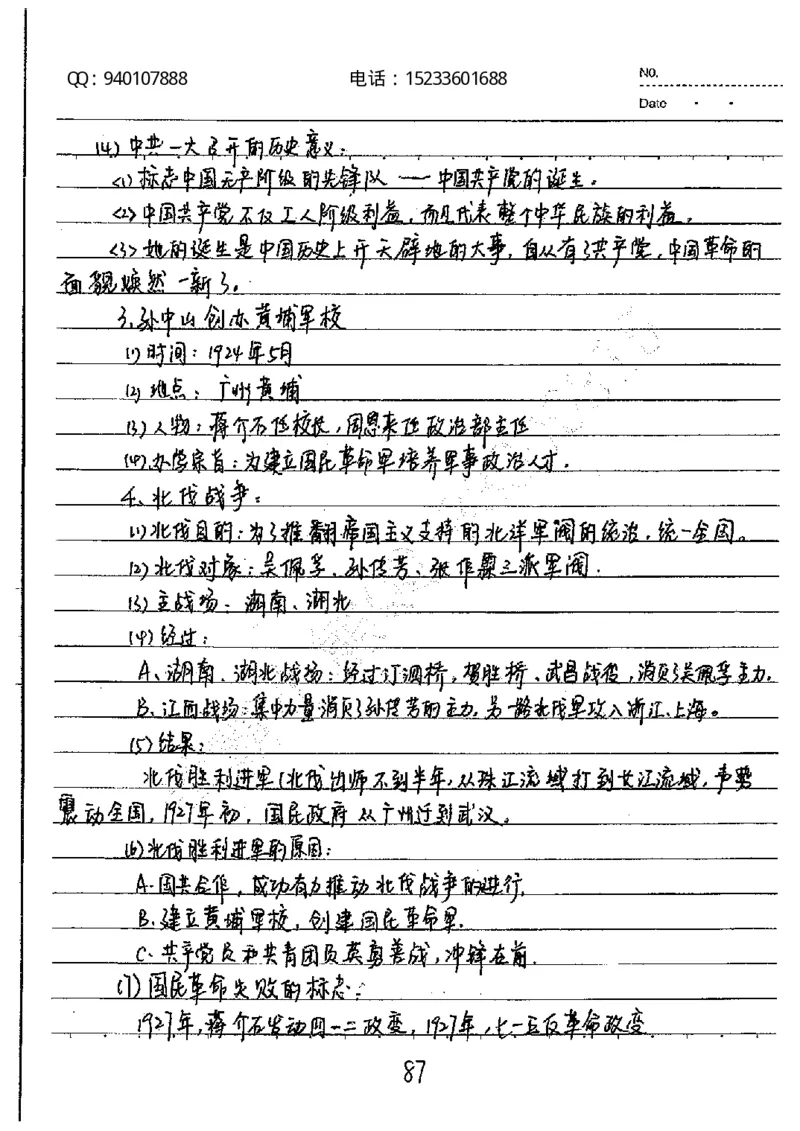 QQ：940107888 电话：15233601688 No.
Date
(4) 中共一大召开的历史意义：
<1>标志中国无产阶级的先锋队——中国共产党的诞生。
<2>中国共产党不仅工人阶级利益，而且代表整个中华民族的利益。
<3>她的诞生是中国历史上开天辟地的大事，自从有了共产党，中国革命的
面貌焕然一新了。
3、孙中山创办黄埔军校
(1)时间：1924年5月
(2)地点：广州黄埔
(3)人物：蒋介石任校长，周恩来任政治部主任
(4)办学宗旨：为建立国民革命军培养军事政治人才.
4、北伐战争：
(1)北伐目的：为了推翻帝国主义支持的北洋军阀的统治，统一全国。
(2)北伐对象：吴佩孚、孙传芳、张作霖三派军阀.
(3)主战场：湖南、湖北
(4)经过：
A、湖南、湖北战场：经过汀泗桥，贺胜桥、武昌战役，消灭了吴佩孚主力.
B、江西战场：集中力量消灭了孙传芳的主力，另一路北伐军攻入浙江、上海。
(5)结果：
北伐胜利进军(北伐出师不到半年，从珠江流域打到长江流域，声势
震动全国，1927年初，国民政府从广州迁到武汉。
(6)北伐胜利进军的原因：
A.国共合作，成功有力推动北伐战争的进行.
B.建立黄埔军校，创建国民革命军.
C.共产党员和共青团员英勇善战，冲锋在前.
(7)国民革命失败的标志：
1927年，蒋介石发动四一二政变，1927年，七一五反革命政变
87